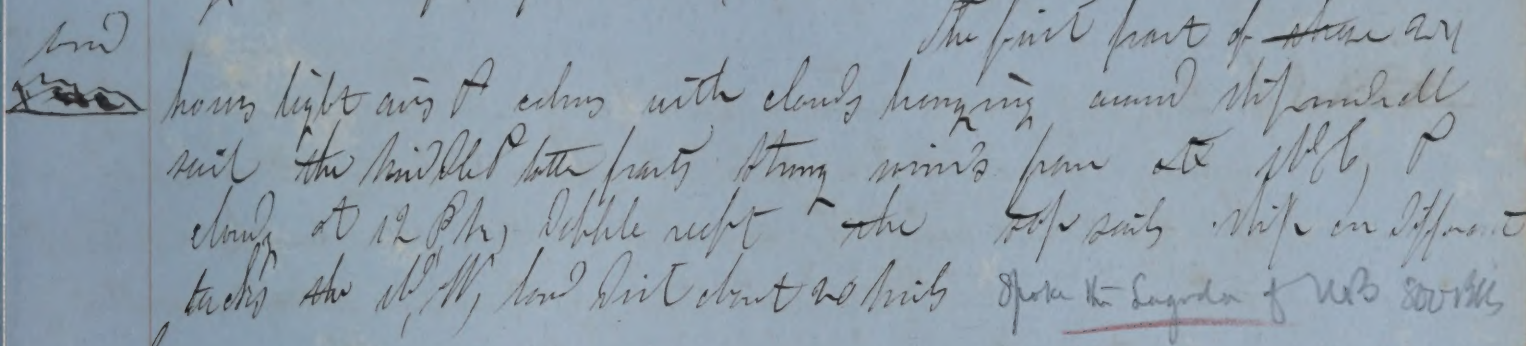 land
The first part of these 24
hours light airs & calms with clouds hanging around ship under all
sail the middle & latter parts strong winds from
cloudy at 12 P M, Dubble reeft the top sails ship on different
tacks the N, W, land Dist about 20 miles Spoke the Lagoda of NB 800 Bbls